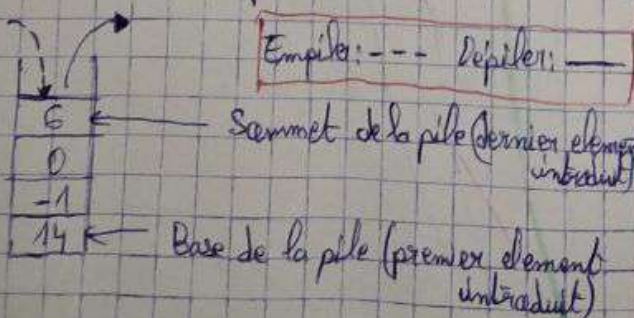 Empiler: - - - Dépiler: —
6
Sommet de la pile (dernier element
introduit)
0
-1
14
Base de la pile (premier element
introduit)